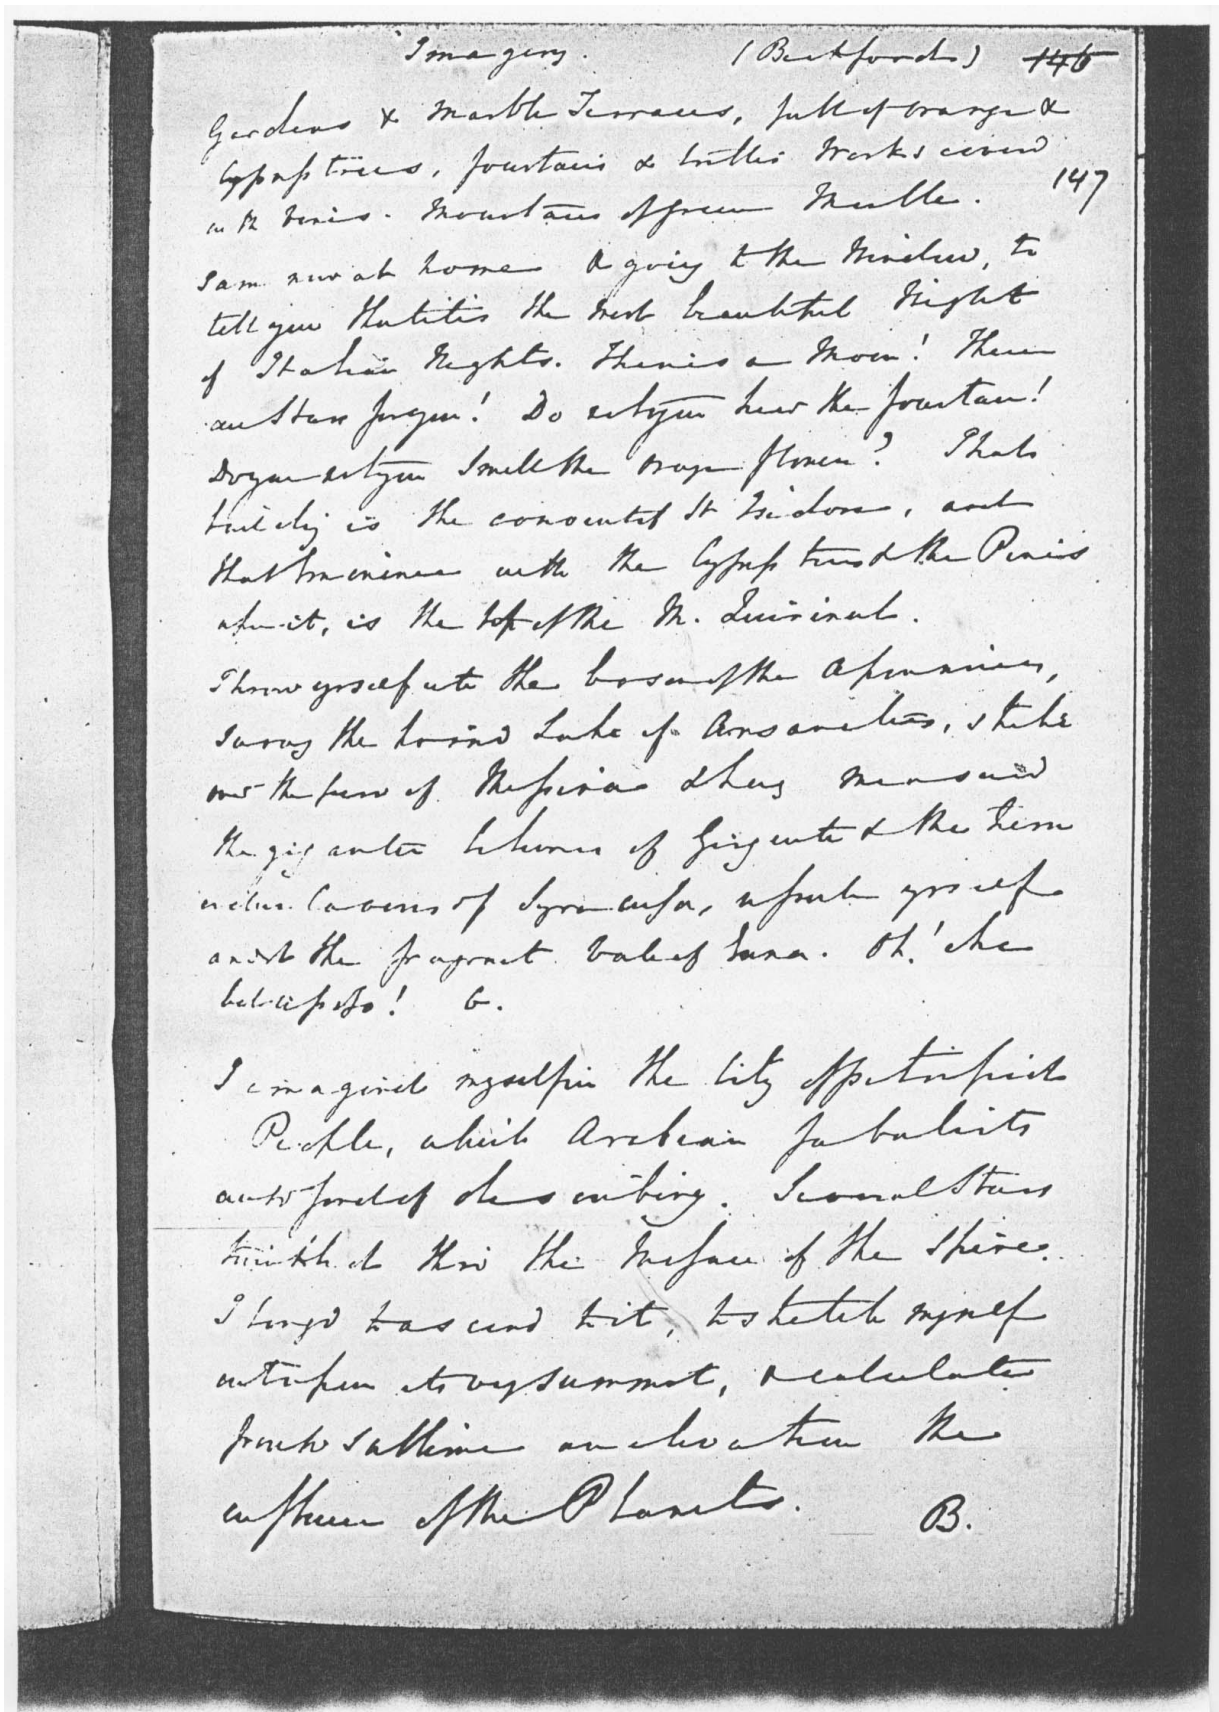 Imagery. (Beckfords) 146
Gardens & Marble Terraces, full of orange &
Cypress trees, fountains & trellis Works coverd
with vines. Mountains of green Marble. 147
I am now at home & going to the Window, to
tell you that it is the most beautiful Night
of Italian Nights. There is a Moon! There
are Stars for you! Do not you hear the fountain!
Do you not you Smell the orange flowers? That
building is the convent of St Isidore, and
that Eminence with the Cypress trees & the Pines
upon it, is the top of the M. Quirinal.
Throw yrself into the bosom of the Apennines,
Survey the horrid Lake of Amsanctus, strike
over the furor of Messina & hang measured
the gigantic Columns of Girgenti & the
Caverns of Syracusa, yrself
amidst the fragrant Vale of Enna. Oh! che
bel riposo! G.
I imagined myself in the City of petrified
People, which Arabian fabulists
are so fond of describing. Several Stars
twinkled thro the of the Spire.
I longd to ascend to it, to stretch myself
out upon its very summit, & calculate
from so sublime an elevation the
influence of the Planets. B.